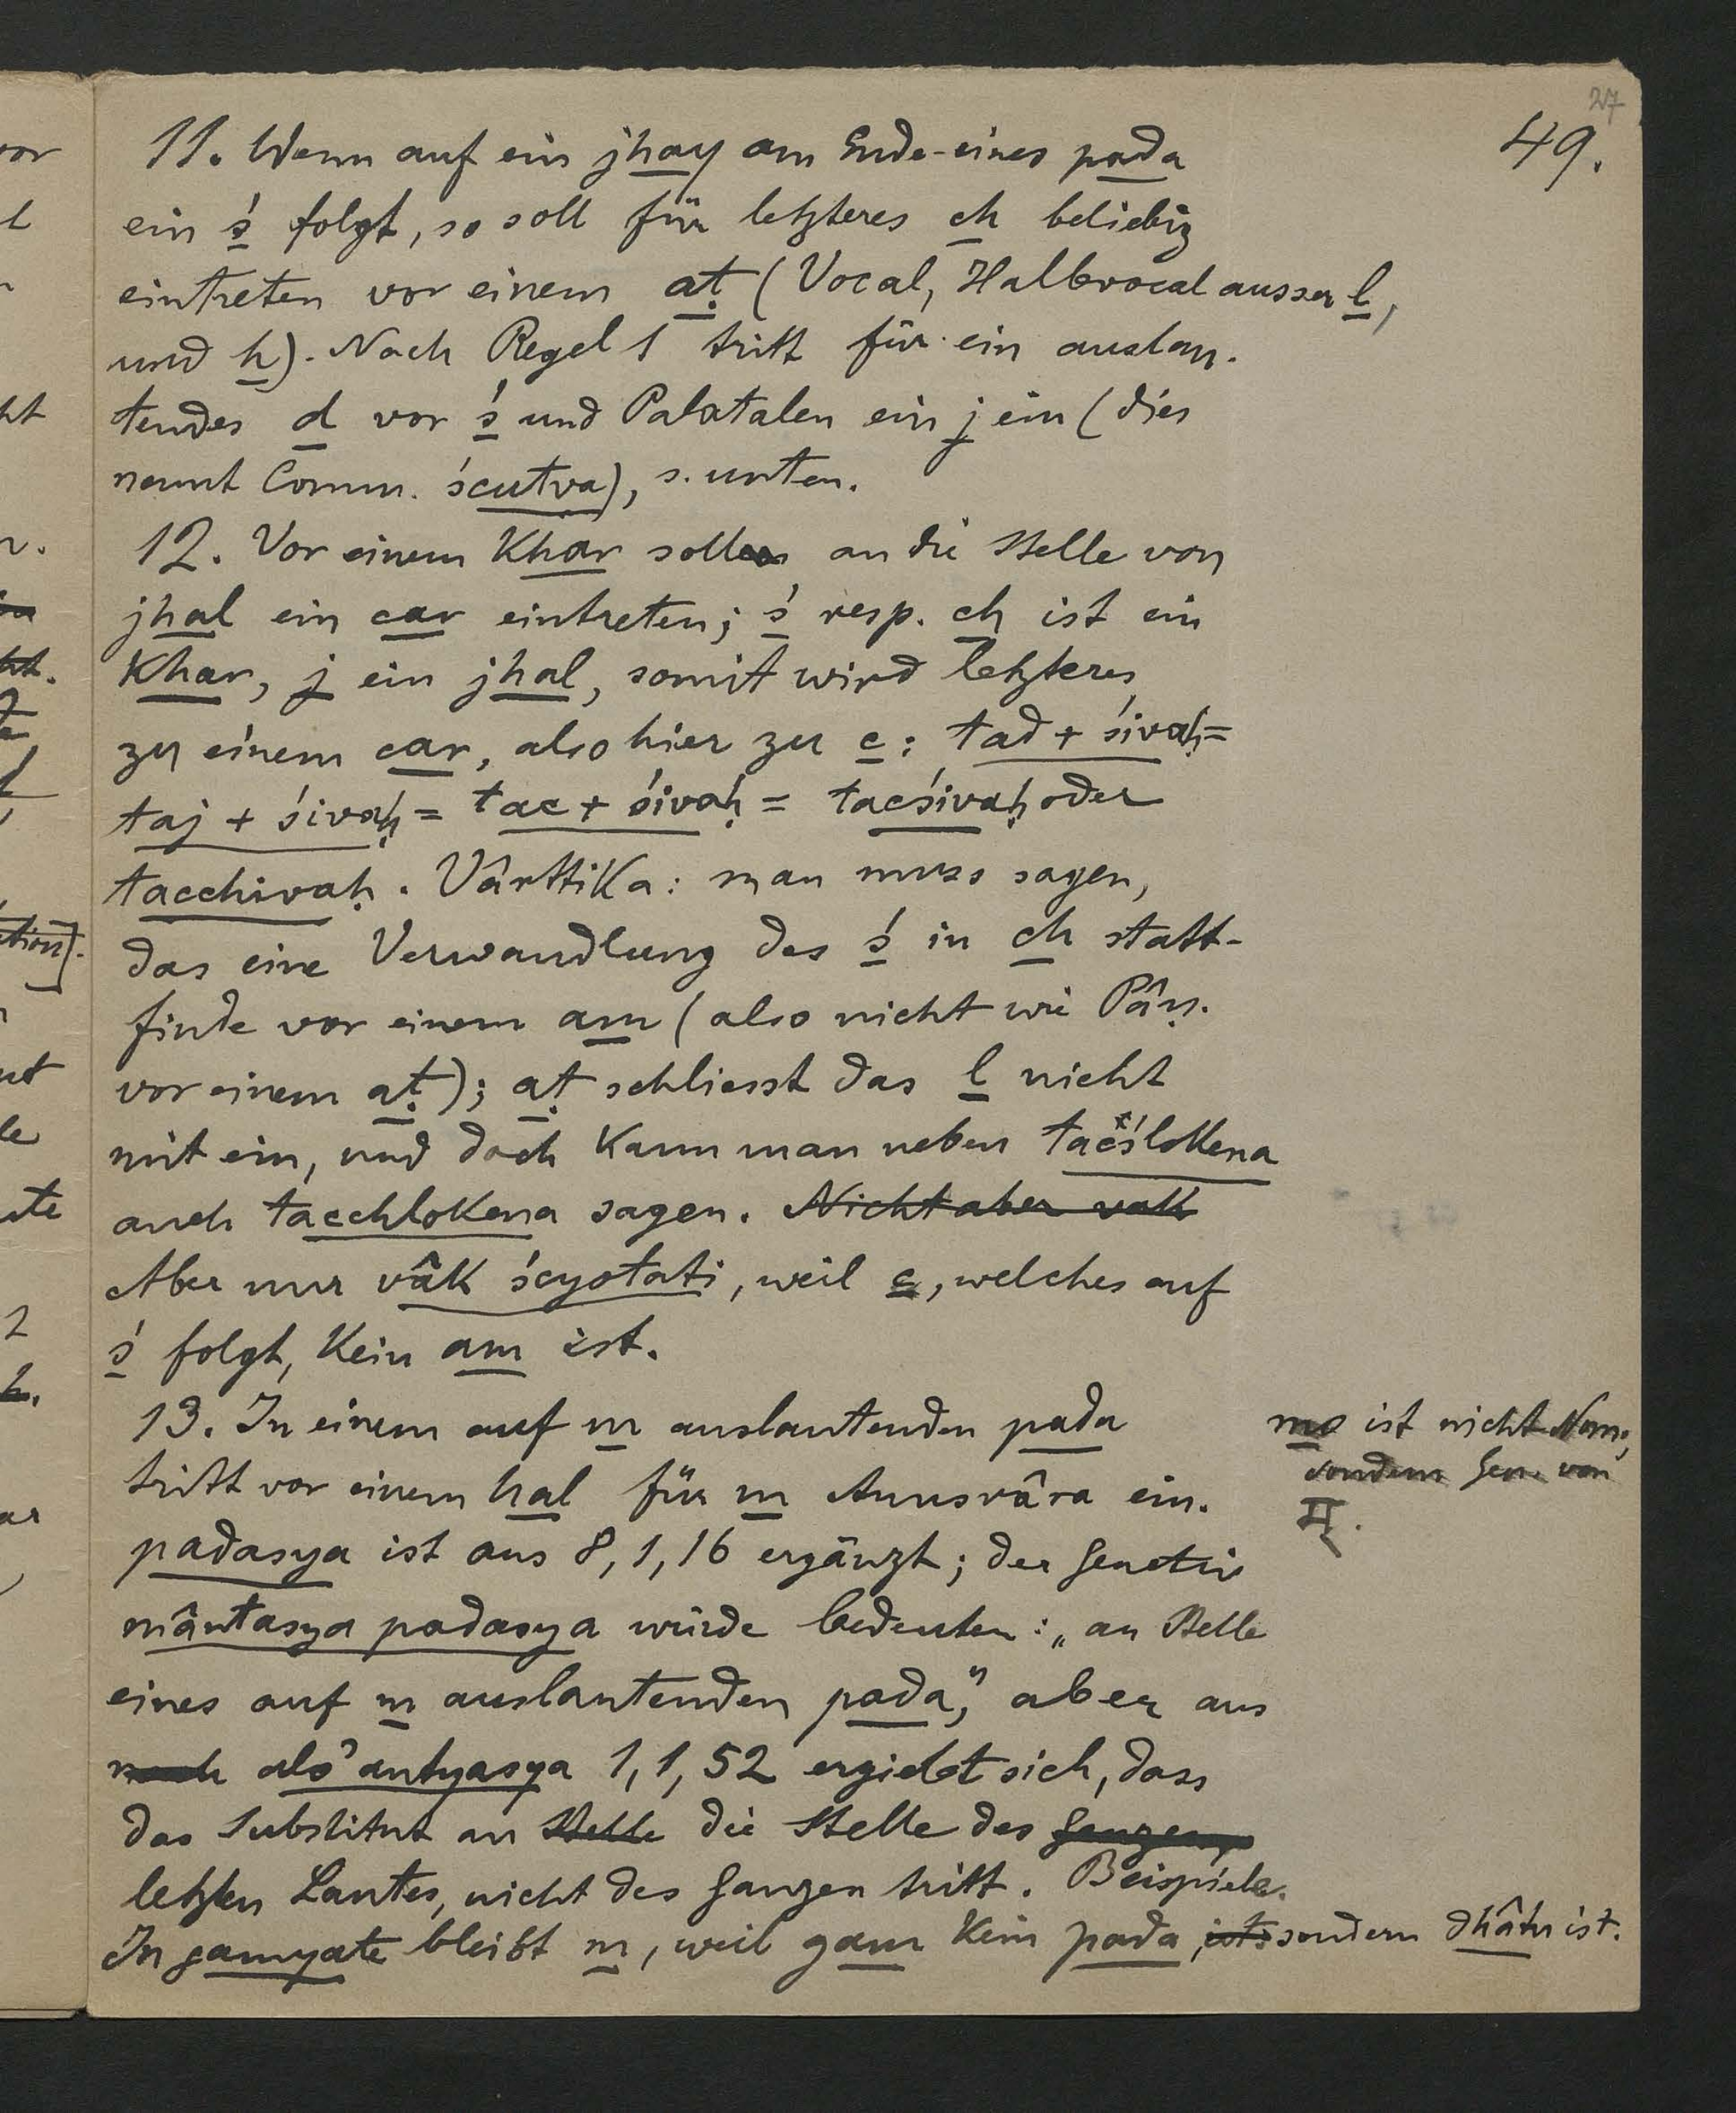 27
49.
11. Wenn auf ein jhay am Ende eines pada
ein ś folgt, so soll für letzteres ch beliebig
eintreten vor einem aṭ (Vocal, Halbvocal ausser l,
und h). Nach Regel 1 tritt für ein auslau-
tendes d vor ś und Palatalen ein j ein (dies
nennt Comm. ścutva), s. unten.
12. Vor einem Khar soll an die Stelle von
jhal ein car eintreten; ś resp. ch ist ein
Khar, j ein jhal, somit wird letzteres
zu einem car, also hier zu c: tad + śivaḥ =
taj + śivaḥ = tac + śivaḥ = tacśivaḥ oder
tacchivaḥ. Vârttika: man muss sagen,
das eine Verwandlung des ś in ch statt-
finde vor einem am (also nicht wie Pâṇ.
vor einem aṭ); aṭ schliesst das l nicht
mit ein, und doch kann man neben tacślokena
auch tacchlokena sagen. Nicht aber vak
Aber nur vâk ścyotati, weil c, welches auf
ś folgt, kein am ist.
13. In einem auf m auslautenden pada
tritt vor einem hal für m Anusvâra ein.
padasya ist aus 8,1,16 ergänzt; der Genetiv
mântasya padasya würde bedeuten: „an Stelle
eines auf m auslautenden pada", aber aus
nach alo'antyasya 1,1,52 ergiebt sich, dass
das Substitut an Stelle die Stelle des Ganzen
letzten Lautes, nicht des Ganzen tritt. Beispiele.
In gamyate bleibt m, weil gam kein pada, ist sondern dhâtu ist.
mo ist nicht Nom.,
sondern Gen. von
म्.